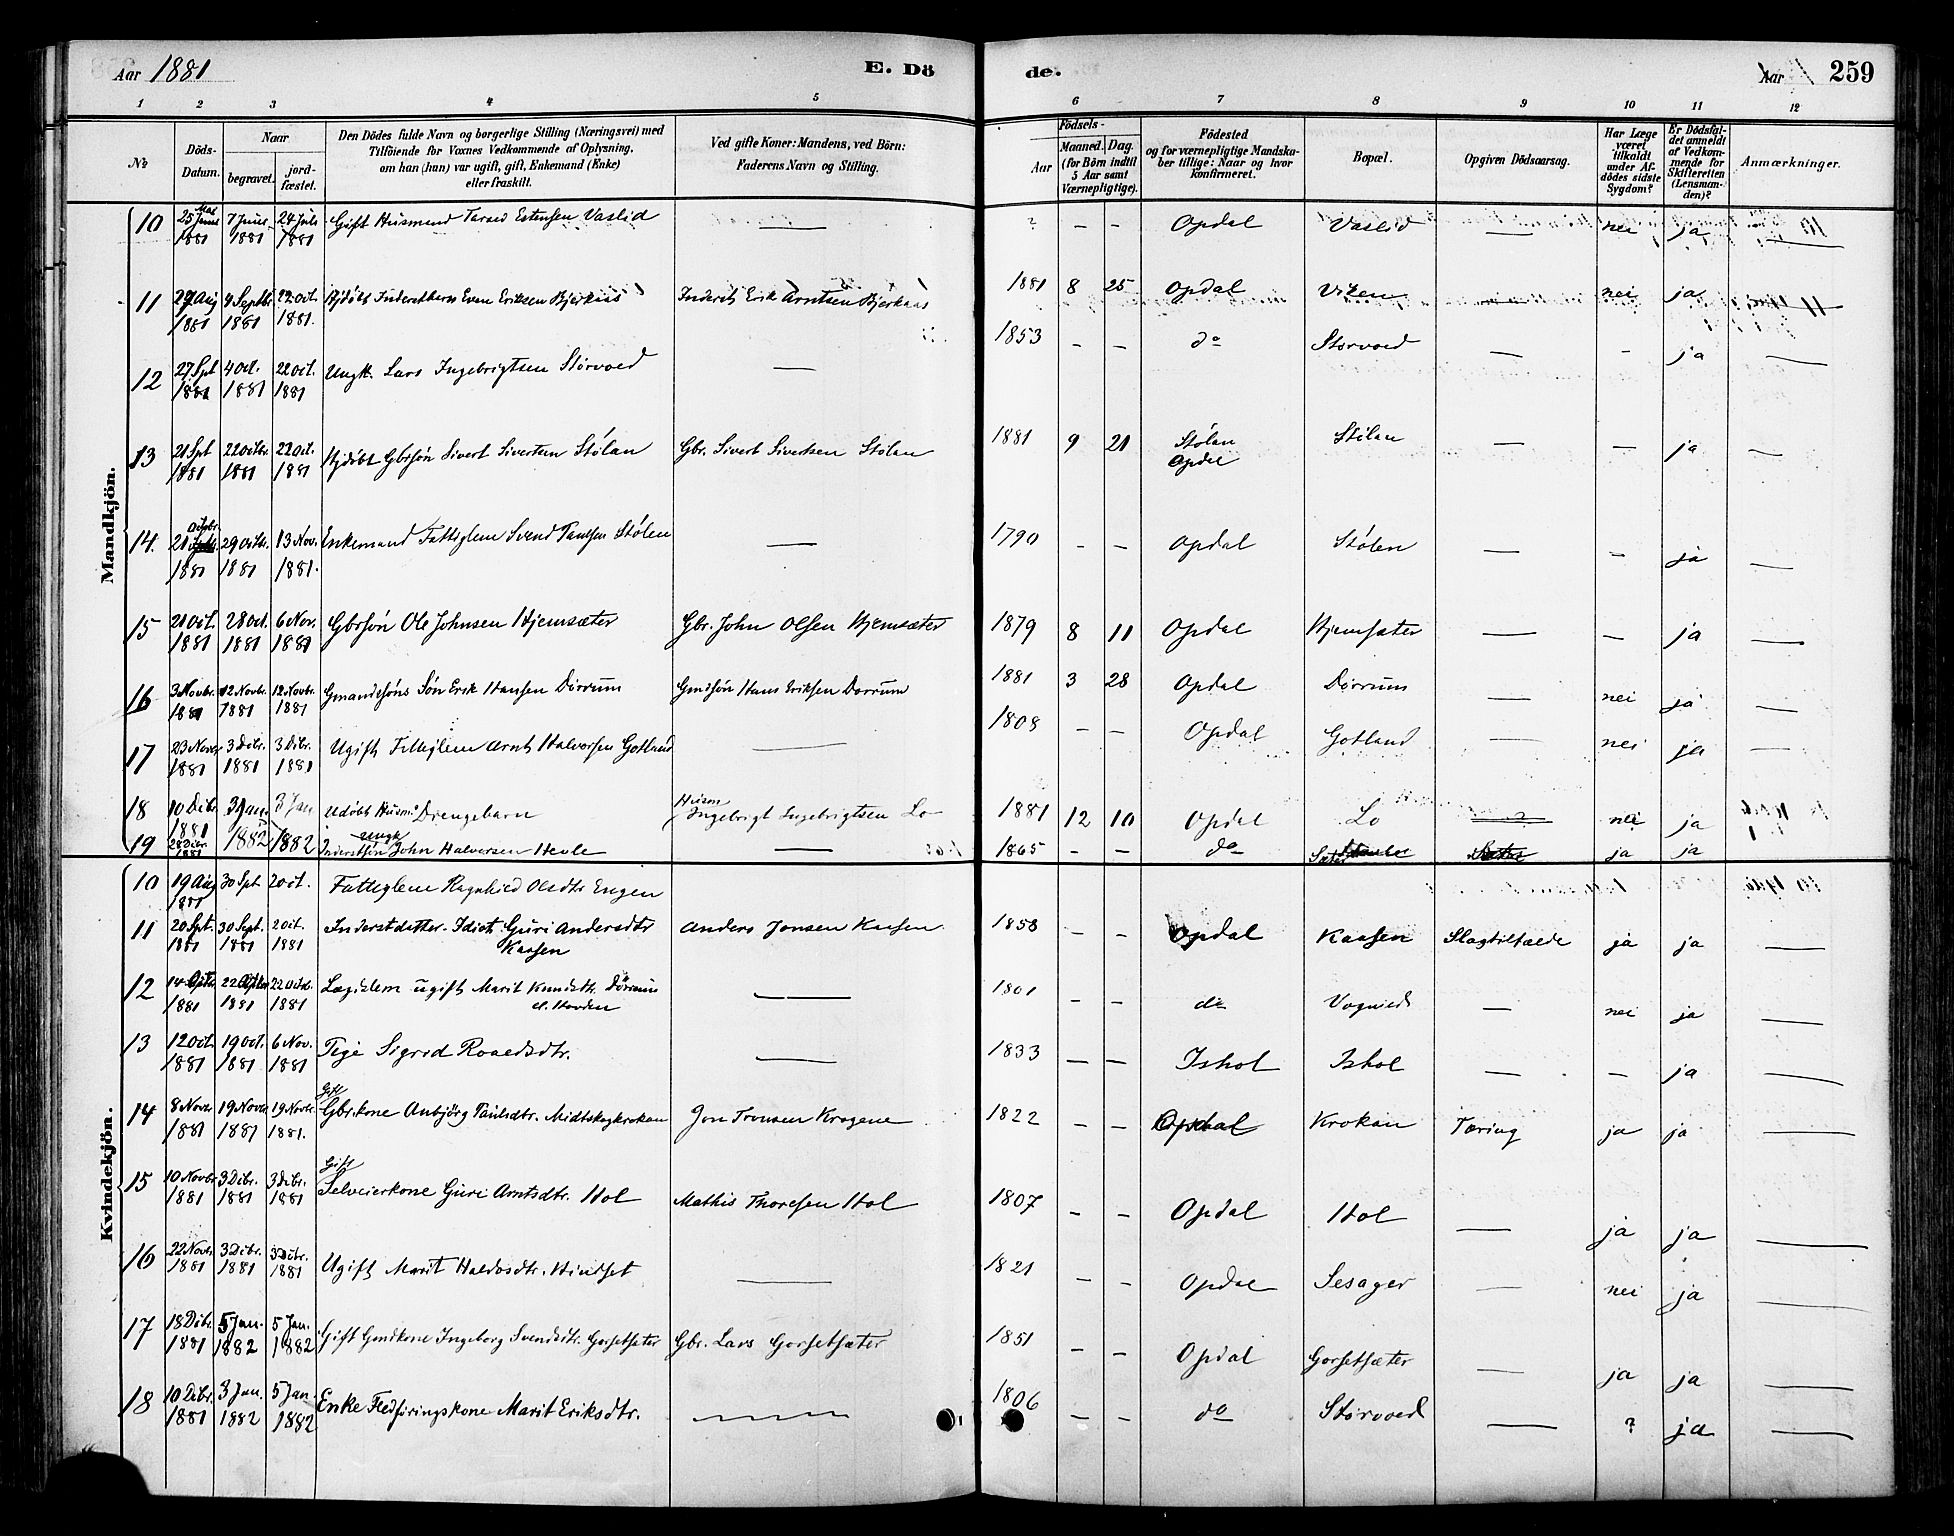 Aar 1881 E. Dö de. Aar 259
1 2 3 4 5 6 7 8 9 10 11 12
No
Döds-Datum.
Naar
begravet.
jordfæstet.
Den Dödes fulde Navn og borgerlige Stilling (Næringsvei) med
Tilföiende for Voxnes Vedkommende af Oplysning,
om han (hun) var ugift, gift, Enkemand (Enke)
eller fraskilt.
Ved gifte Koner: Mandens, ved Börn:
Faderens Navn og Stilling.
Födsels-
Aar
Maaned. Dag.
(for Börn indtil
5 Aar samt
Værnepligtige).
Födested
og for værnepligtige Mandska-
ber tillige: Naar og hvor
konfirmeret.
Bopæl.
Opgiven Dödsaarsag.
Har Læge
været
tilkaldt
under Af-
dödes sidste
Sygdom?
Er Dödsfal-
det anmeldt
af Vedkom-
mende for
Skifteretten
(Lensman-
den)?
Anmærkninger.
Mandkjön.
10 25 Mai 1881 7 Juni 1881 24 Juli 1881 Gift Husmand Estensen Vaslid — ? — — Opdal Vaslid — nei ja —
11 27 Aug 1881 4 Septbr 1881 22 Oct. 1881. Even Eriksen Bjerkaas Inderst Erik Arntsen Bjerkaas 1881 8 25 Opdal Viken — nei ja —
12 27 Spt 1881 4 Oct. 1881 22 Oct. 1881 Ungk. Lars Ingebrigtsen Störvoed — 1853 — — do Storvoed — - ja —
13 21 Spt 1881 22 Octbr. 1881 22 Oct. 1881 Hjdöbt Gbrsön Sivert Sivertsen Stölan Gbr. Sivert Sivertsen Stölan 1881 9 21 Stölan Opdal Stölan — — ja —
14. 21 Octbr. 1881 29 Octb. 1881 13 Nov. 1881. Enkemand Fattiglem Svend Stölen — 1790 — — Opdal Stölen — — ja —
15 21 Oct. 1881 28 Oct. 1881 6 Nov. 1881 Gbrsön Ole Johnsen Hjemsæter Gbr. John Olsen Hjemsæter 1879 8 11 Opdal Hjemsæter — — ja —
16 3 Novbr. 1881 12 Novbr. 1881 12 Novbr. 1881 Gmandsöns Sön Erik Hansen Dörrum Gmdsön Hans Eriksen Dorrum 1881 3 28 Opdal Dörrum — nei ja —
17 23 Novbr 1881 3 Dcbr. 1881 3 Dcbr. 1881 Ugift Fattiglem Arnt Halvorsen Gotland — 1808 — — Opdal Gotland — nei ja —
18 10 Dcbr. 1881 3 Jan. 1882 3 Jan 1882 Udöbt Husm: Drengebarn Husm Ingebrigt Ingebrigtsen Lo 1881 12 10 Opdal Lo — nei ja
19 28 Dcbr. 1881 Inderstsön Ungk John Halvorsen Hevle — 1865 — — do ja ja
Kvindekjön.
10 19 Aug 1881 30 Spt 2 Oct. Fattiglem Ragnhild Olsdtr Engen
11 20 Spt. 1881 30 Sept. 1881 2 Oct. 1881 Inderstdatter. Idiot Guri Andersdtr Kaasen Anders Jonsen Kaasen 1858 — — Opdal Kaasen Slagtilfælde ja ja —
12 14 1881 22 1881 22 Octbr. 1881 Lægdslem ugift Marit Knudsdtr. Dörrum — 1801 — — do Vognild — nei ja —
13 12 Oct. 1881 19 Oct. 1881 6 Nov. 1881 Sigrid Roaldsdtr. — 1833 — — Ishol Ishol — — ja —
14 8 Novbr 1881 19 Novbr 1881 19 Novbr 1881. Gift Gbrkone Anbjörg Paulsdtr. Midtskogkrokan Jon Tronsen Krogene 1822 — — Opdal Krokan Tæring ja ja —
15 10 Novbr 1881 3 Dcbr. 1881 3 Dcbr. 1881 Gift Selveierkone Guri Arntsdtr. Hol Mathis Thoresen Hol 1807 — — Opdal Hol — ja ja —
16 22 Novbr. 1881 3 Dcbr. 1881 3 Dcbr. 1881 Ugift Marit Haldosdtr. Hindset — 1821 — — Opdal Sesager — nei ja —
17 18 Dcbr. 1881 5 Jan. 1882 5 Jan. 1882 Gift Gmdkone Ingeborg Svendsdtr. Gorsetsæter Gbr. Lars Gorsetsæter 1851 — — Opdal Gorsetsæter — ja ja —
18 10 Dcbr. 1881 3 Jan. 1882 5 Jan. 1882 Enke Fledföringskone Marit Eriksdtr. — 1806 — — do Störvoed — ? ja —